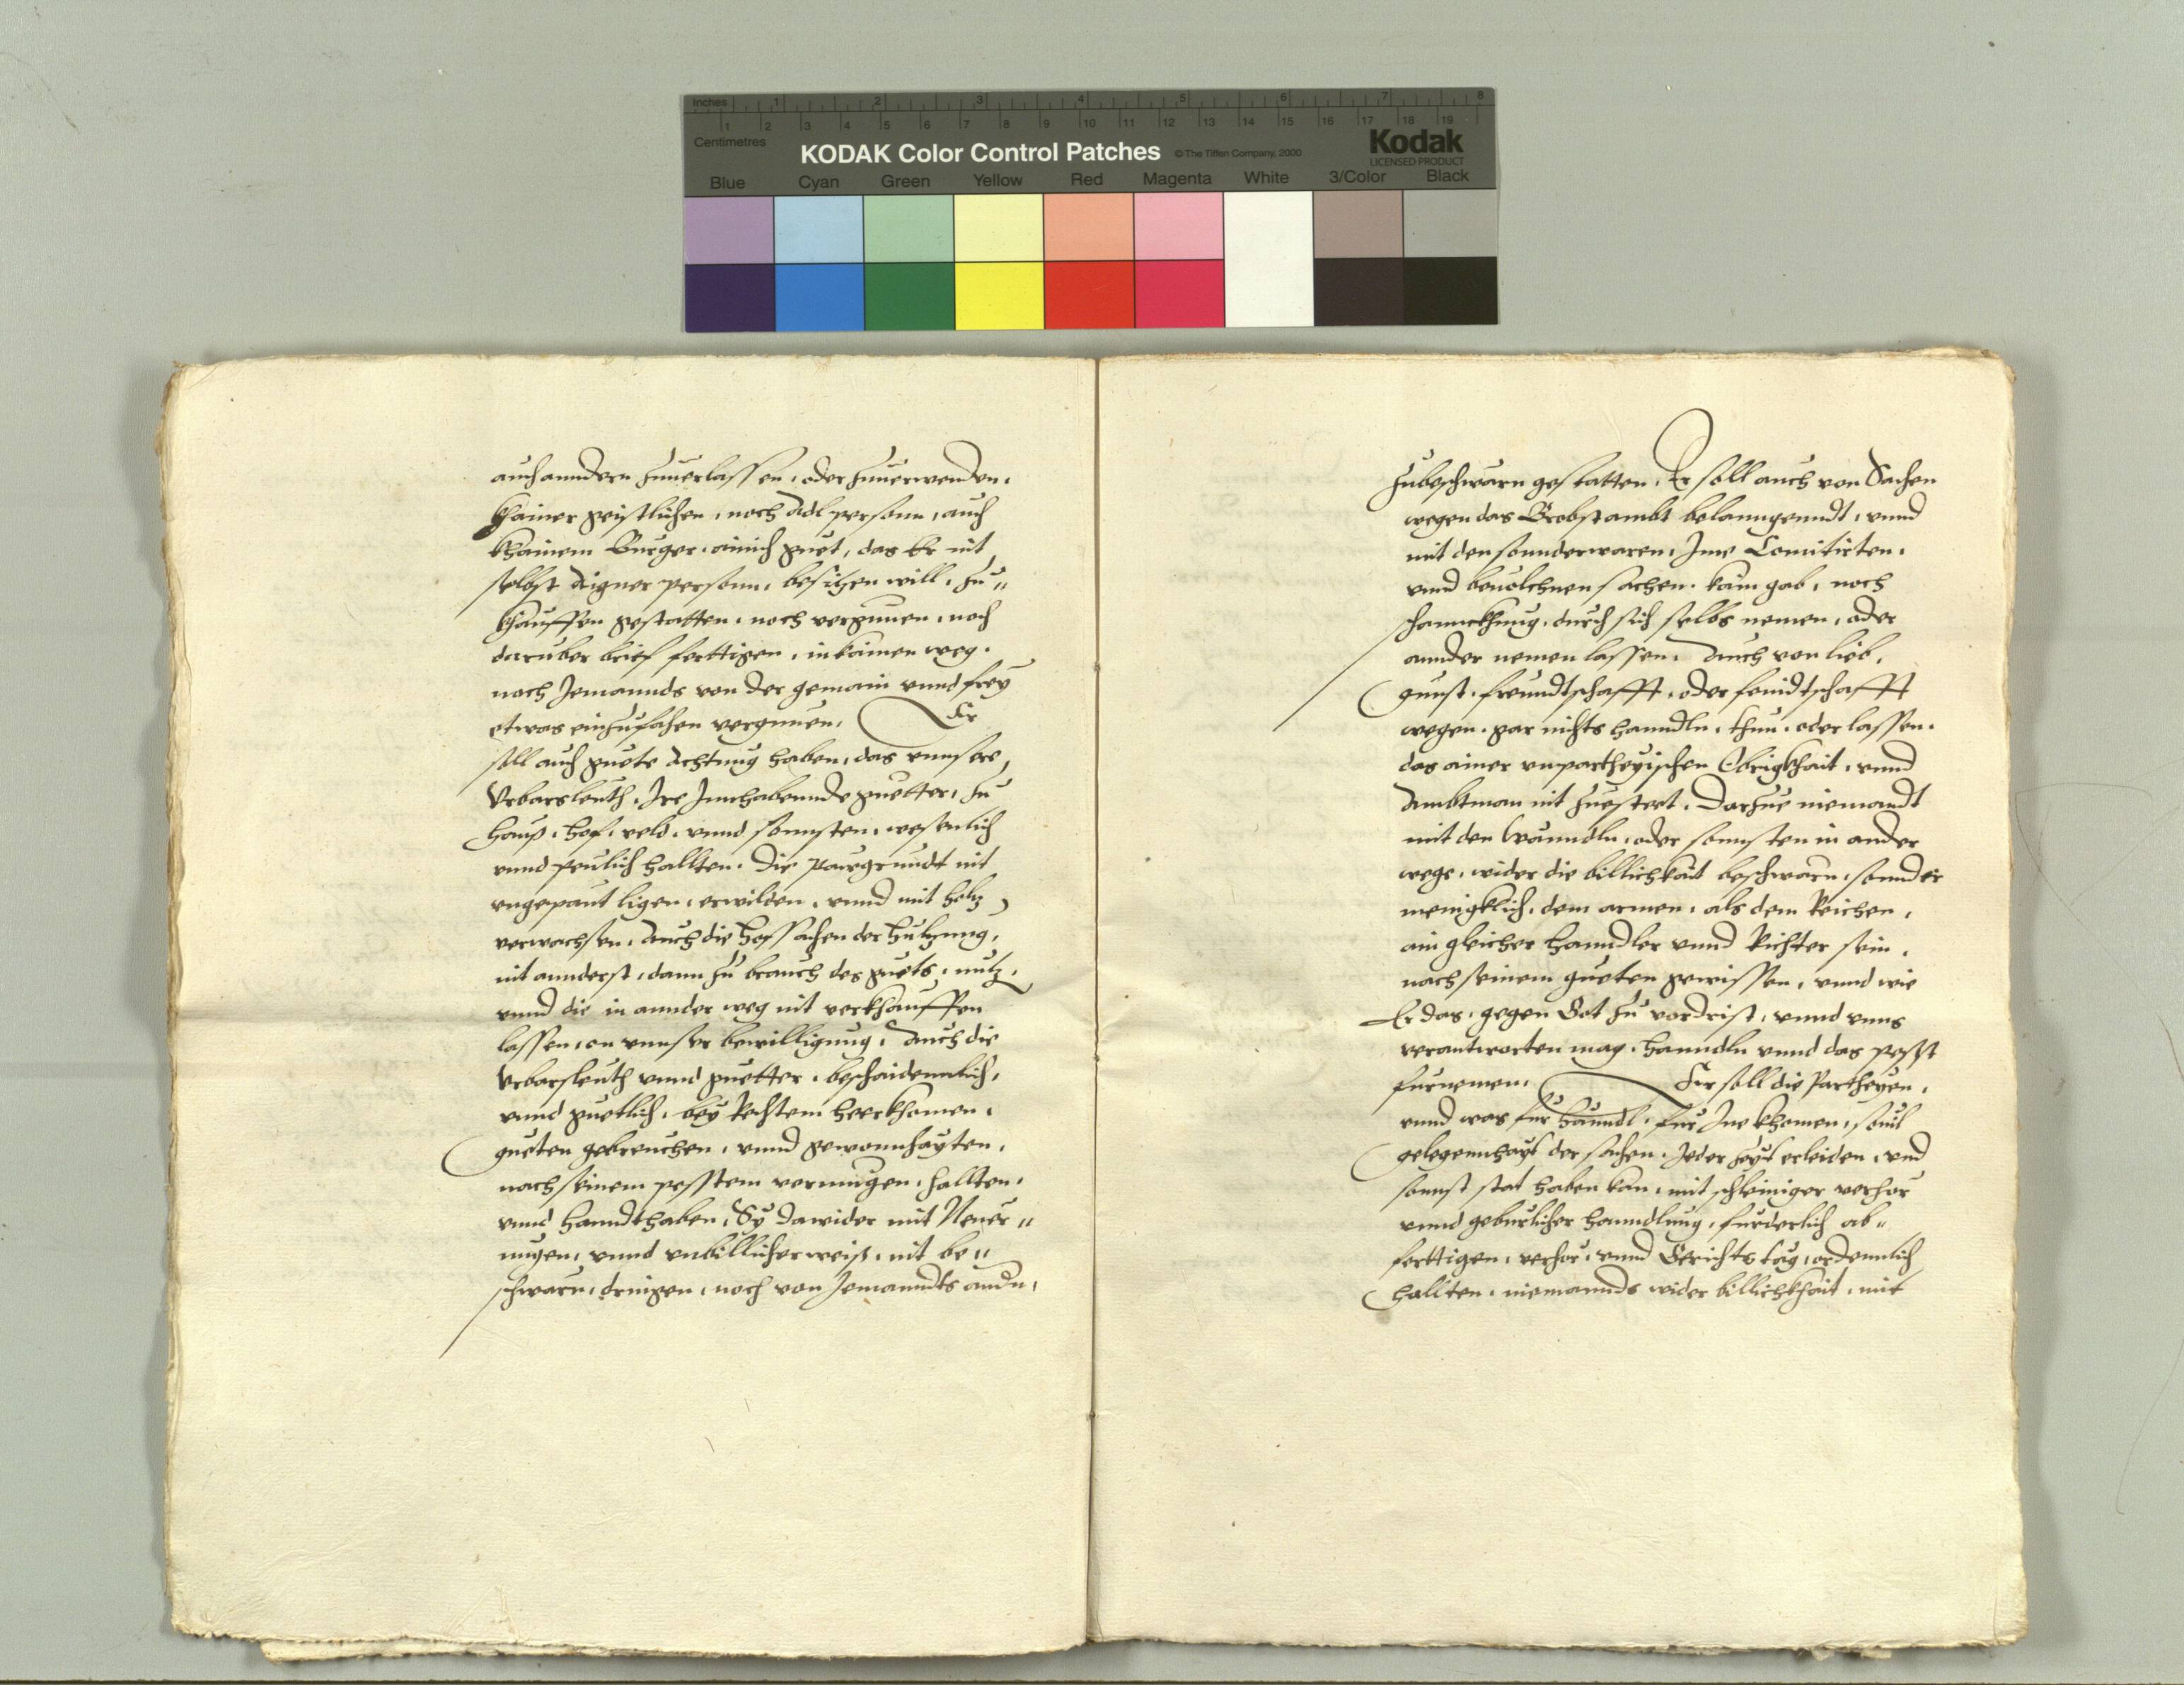 Inches 1 2 3 4 5 6 7 8
1 2 3 4 5 6 7 8 9 10 11 12 13 14 15 16 17 18 19
Centimetres
KODAK Color Control Patches © The Tiffen Company, 2000
Kodak
LICENSED PRODUCT
Blue Cyan Green Yellow Red Magenta White 3/Color Black
auch anndern zuuerlassen, oder zuuerwenden,
Khainer geistlichen, noch Adl person, auch
khainem Burger, ainich guet, das Er nit
selbst Aigner person, besitzen will, zu„
khauffen gestatten, noch vergunen, noch
daruber brief ferttigen, in kainen weg.
noch Jemannds von der gemain vnnd frey
etwas einzufahen vergunen. Er
soll auch guete Achtung haben, das vnnsere
Vrbarsleuth, Ire Innhabennde guetter, zu
hauß, hof, veld, vnnd sonnsten, wesenlich
vnnd peulich hallten. Die paugrundt nit
vngepaut ligen, erwilden, vnnd mit holtz
verwachsen, Auch die hofsachen der hultzung,
nit annderst, dann zu brauch des guets, nutz,
vnnd die in annder weg nit verkhauffen
lassen, on vnnser bewilligung, Auch die
Vrbarsleuth vnnd guetter, beschaidennlich,
vnnd guetlich, bey Rechtem heerkhomen,
gueten gebreuchen, vnnd gewonnhayten,
nach seinem pessten vermugen, hallten,
vnnd hanndthaben, Sy dawider mit Neuer„
ungen, vnnd vnbillicher weiß, nit be„
schwarn, dringen, noch von Jemanndts andn,
zubeschwarn gestatten. Er soll auch von Sachen
wegen das Brobstambt belanngenndt, vnnd
mit den sonnderwaren, Ime Comitirten,
vnnd beuolchnen sachen, kain gab, noch
schannckhung, durch sich selbs nemen, oder
annder nemen lassen. Auch von lieb,
gunst, freundtschafft, oder feindtschafft
wegen, gar nichts hanndln, thun, oder lassen,
das ainer vnpartheyischen Obrigkhait, vnnd
Ambtman nit zuesteet. Darzue niemandt
mit den Wanndln, oder sonnsten in ander
wege, wider die billichkait beschwarn, sonnder
menigklich, dem armen, als dem Reichen,
ain gleicher hanndler vnnd Richter sein,
nach seinem gueten gewissen, vnnd wie
Er das, gegen Got zu vordrist, vnnd vnns
verantworten mag, hanndln vnnd das pesst
furnemen. Er soll die Partheyen,
vnnd was fur hanndl, fur Ine khomen, souil
gelegennhayt der sachen, Jeder zeyt erleiden, vnd
sonnst stat haben kan, mit schleiniger verhör
vnnd geburlicher hanndlung, furderlich ab„
ferttigen, verhör, vnnd Gerichts tag, ordennlich
hallten, niemannds wider billichkhait, mit